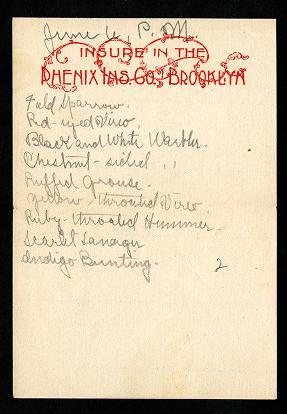 June 6, P. M.
INSURE IN THE
PHENIX INS. CO., BROOKLYN
Field Sparrow.
Red-eyed Vireo
Black and White Warbler.
Chestnut-sided ,,
Ruffed Grouse.
Yellow-throated Vireo.
Ruby-throated Hummer.
Scarlet Tanager
Indigo Bunting. 2